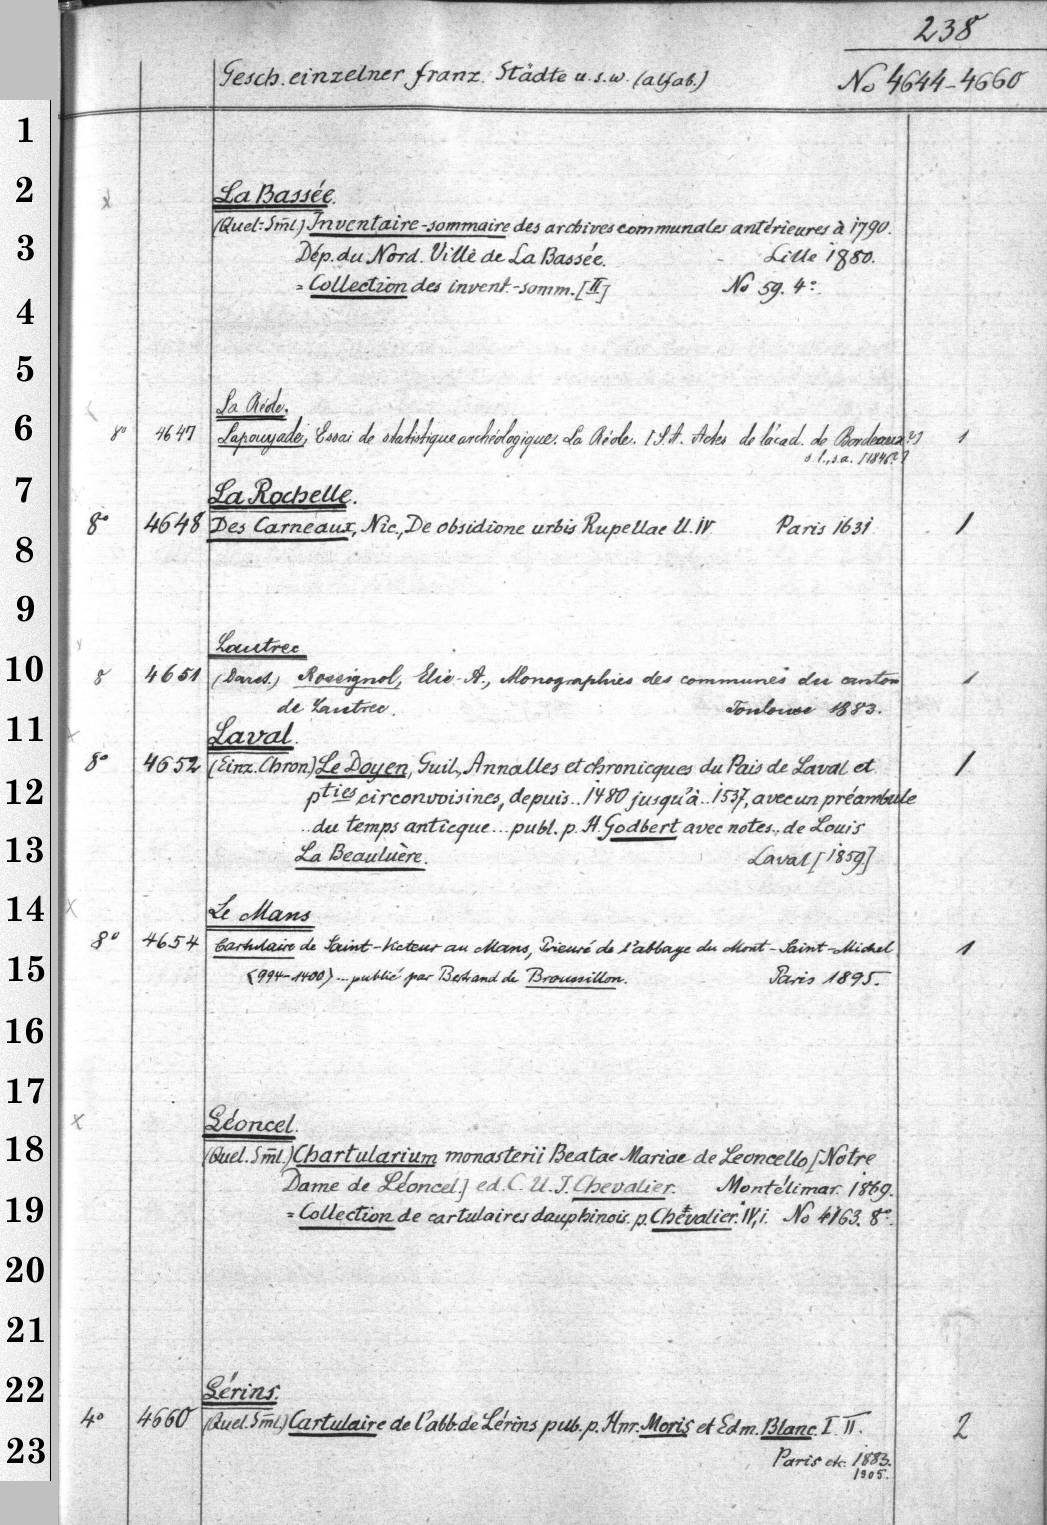 238
Gesch. einzelner franz. Städte u.s.w. (alfab.) No 4644-4660
1
2
La Bassée.
(Quel.-Sml.) Inventaire-sommaire des archives communales antérieures à 1790.
3
Dép. du Nord. Ville de La Bassée. Lille 1880.
= Collection des invent.-somm. [II] No 59. 4°.
4
5
La Réole.
6
8° 4647 Lapouyade, Essai de statistique archéologique. La Réole. [S.A. Actes de l'acad. de Bordeaux?] 1
s.l., s.a. [1846?]
7
La Rochelle.
8° 4648 Des Carneaux, Nic., De obsidione urbis Rupellae ll. IV Paris 1631 1
8
9
Lautrec
10
8 4651 (Darst.) Rossignol, Elie-A., Monographies des communes du canton 1
de Lautrec. Toulouse 1883.
11
Laval.
8° 4652 (Einz. Chron) Le Doyen, Guil., Annalles et chronicques du Pais de Laval et 1
12
pties circonvoisines, depuis.. 1480 jusqu'à.. 1537, avec un préambule
..du temps anticque... publ. p. H. Godbert avec notes.. de Louis
13
La Beauluère. Laval [1859]
14
Le Mans
8° 4654 Cartulaire de Saint-Victeur au Mans, Prieuré de l'abbaye du Mont-Saint-Michel 1
15
(994-1400) ... publié par Bertrand de Broussillon. Paris 1895.
16
17
Léoncel.
18
(Quel. Sml.) Chartularium monasterii Beatae Mariae de Leoncello [Notre
Dame de Léoncel.] ed. C. U. J. Chevalier. Montélimar 1869.
19
= Collection de cartulaires dauphinois. p. Chevalier. IV, i. No 4163. 8°.
20
21
22
Lérins.
4° 4660 (Quel. Sml.) Cartulaire de l'abb. de Lérins pub. p. Hnr. Moris et Edm. Blanc. I. II. 2
23
Paris etc. 1883.
1905.